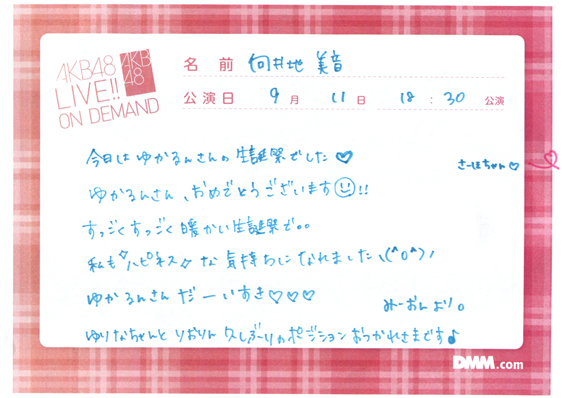 AKB48
LIVE!!
ON DEMAND
AKB
48
名前 向井地 美音
公演日 9月 11日 18:30 公演
今日は ゆかるんさんの 生誕祭でした♡
さーほちゃん♡
ゆかるんさん、おめでとうございます☺!!
すっごくすっごく 暖かい 生誕祭で。。
私も ハピネス な 気持ちになれました、(^o^)ノ
ゆかるんさん だーいすき♡♡♡
みーおんより。
ゆりなちゃんと りおりん 久しぶりの ポジション おつかれさまです♪
DMM.com